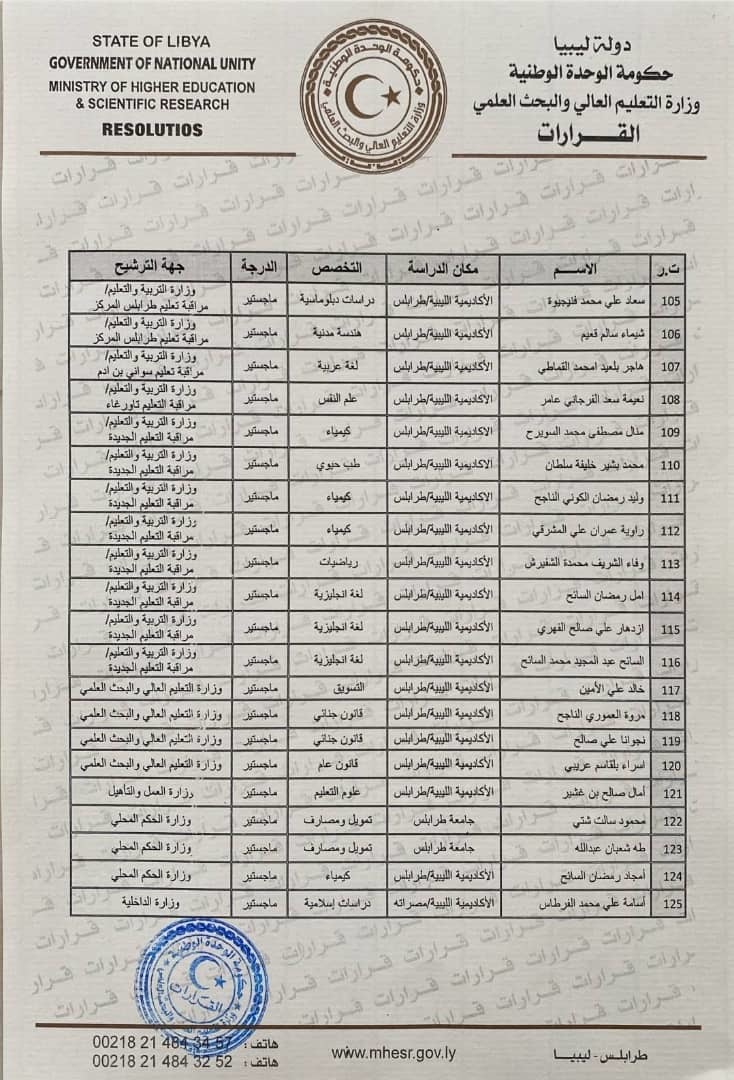 STATE OF LIBYA
GOVERNMENT OF NATIONAL UNITY
MINISTRY OF HIGHER EDUCATION
& SCIENTIFIC RESEARCH
RESOLUTIOS
دولة ليبيا
حكومة الوحدة الوطنية
وزارة التعليم العالي والبحث العلمي
القـــرارات
حكومة الوحدة الوطنية
وزارة التعليم العالي والبحث العلمي
ت.ر الاســـم مكان الدراسة التخصص الدرجة جهة الترشيح
105 سعاد علي محمد فنيجيوة الأكاديمية الليبية/طرابلس دراسات دبلوماسية ماجستير وزارة التربية والتعليم/
مراقبة تعليم طرابلس المركز
106 شيماء سالم قعيم الأكاديمية الليبية/طرابلس هندسة مدنية ماجستير وزارة التربية والتعليم/
مراقبة تعليم طرابلس المركز
107 هاجر بلعيد امحمد القماطي الأكاديمية الليبية/طرابلس لغة عربية ماجستير وزارة التربية والتعليم/
مراقبة تعليم سواني بن ادم
108 نعيمة سعد الفرجاني عامر الأكاديمية الليبية/طرابلس علم النفس ماجستير وزارة التربية والتعليم/
مراقبة التعليم تاورغاء
109 منال مصطفى محمد السويرح الأكاديمية الليبية/طرابلس كيمياء ماجستير وزارة التربية والتعليم/
مراقبة التعليم الجديدة
110 محمد بشير خليفة سلطان الأكاديمية الليبية/طرابلس طب حيوي ماجستير وزارة التربية والتعليم/
مراقبة التعليم الجديدة
111 وليد رمضان الكوني الناجح الأكاديمية الليبية/طرابلس كيمياء ماجستير وزارة التربية والتعليم/
مراقبة التعليم الجديدة
112 راوية عمران علي المشرقي الأكاديمية الليبية/طرابلس كيمياء ماجستير وزارة التربية والتعليم/
مراقبة التعليم الجديدة
113 وفاء الشريف محمدة الشفيرش الأكاديمية الليبية/طرابلس رياضيات ماجستير وزارة التربية والتعليم/
مراقبة التعليم الجديدة
114 امل رمضان السائح الأكاديمية الليبية/طرابلس لغة انجليزية ماجستير وزارة التربية والتعليم/
مراقبة التعليم الجديدة
115 ازدهار علي صالح الفهري الأكاديمية الليبية/طرابلس لغة انجليزية ماجستير وزارة التربية والتعليم/
مراقبة التعليم الجديدة
116 السائح عبد المجيد محمد السائح الأكاديمية الليبية/طرابلس لغة انجليزية ماجستير وزارة التربية والتعليم/
مراقبة التعليم الجديدة
117 خالد علي الأمين الأكاديمية الليبية/طرابلس التسويق ماجستير وزارة التعليم العالي والبحث العلمي
118 مروة العموري الناجح الأكاديمية الليبية/طرابلس قانون جنائي ماجستير وزارة التعليم العالي والبحث العلمي
119 نجوانا علي صالح الأكاديمية الليبية/طرابلس قانون جنائي ماجستير وزارة التعليم العالي والبحث العلمي
120 اسراء بلقاسم عريبي الأكاديمية الليبية/طرابلس قانون عام ماجستير وزارة التعليم العالي والبحث العلمي
121 أمال صالح بن غشير الأكاديمية الليبية/طرابلس علوم التعليم ماجستير وزارة العمل والتأهيل
122 محمود سالت شتي جامعة طرابلس تمويل ومصارف ماجستير وزارة الحكم المحلي
123 طه شعبان عبدالله جامعة طرابلس تمويل ومصارف ماجستير وزارة الحكم المحلي
124 أمجاد رمضان السائح الأكاديمية الليبية/طرابلس كيمياء ماجستير وزارة الحكم المحلي
125 أسامة علي محمد الفرطاس الأكاديمية الليبية/مصراته دراسات إسلامية ماجستير وزارة الداخلية
حكومة الوحدة الوطنية
القرارات
طرابلس - ليبيا
www.mhesr.gov.ly
هاتف : 00218 21 484 34 57
هاتف : 00218 21 484 32 52